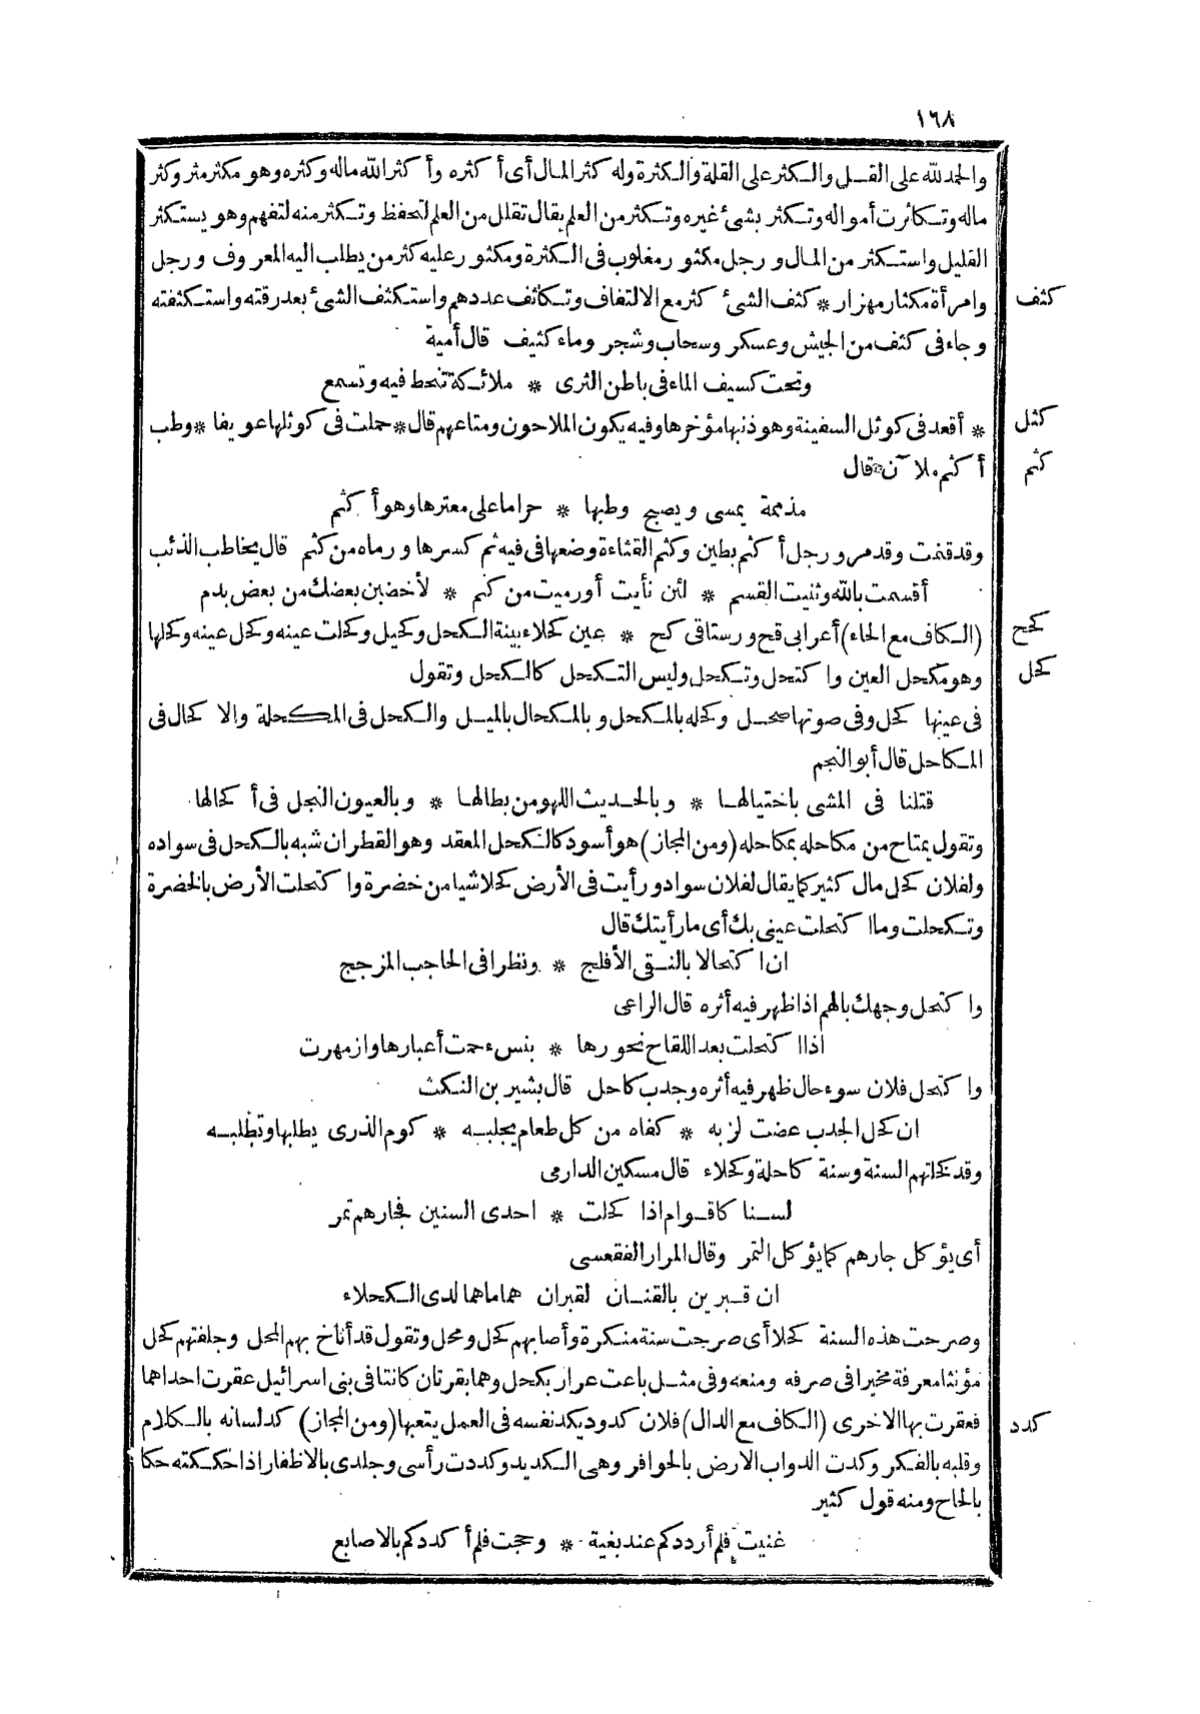 ١٦٨
والحمد لله على القل والكثر على القلة والكثرة وله كثر المال أى أكثره وأكثر الله ماله وكثره وهو مكثر مثر وكثر
ماله وتكاثرت أمواله وتكثر بشئ غيره وتكثر من العلم يقال تقلل من العلم لتحفظ وتكثر منه لتفهم وهو يستكثر
القليل واستكثر من المال ورجل مكثور مغلوب فى الكثرة ومكثور عليه كثر من يطلب اليه المعروف ورجل
كثف وامرأة مكثار مهزار * كثف الشئ كثر مع الالتفاف وتكاثف عددهم واستكثف الشئ بعد رقته واستكثفته
وجاء فى كثف من الجيش وعسكر وسحاب وشجر وماء كثيف قال أمية
وتحت كسيف الماء فى باطن الثرى * ملائكة تنحط فيه وتسمع
كثل * أقعد فى كوثل السفينة وهو ذنبها مؤخرها وفيه يكون الملاحون ومتاعهم قال * حملت فى كوثلها عويفا * وطب
كثم أكثم ملآن قال
مذممة يمسى ويصبح وطبها * حراما على معترها وهو أكثم
وقد قنمت وقدمر ورجل أكثم بطين وكثم القثاءة وضعها فى فيه ثم كسرها ورماه من كثم قال يخاطب الذئب
أقسمت بالله وثنيت القسم * لئن نأيت أو رميت من كثم * لأخضبن بعضك من بعض بدم
كحح (الكاف مع الحاء) أعرابى قح ورستاقى كح * عين كحلاء بينة الكحل وكحيل وكحلت عينه وكحل عينه وكحلها
كحل وهو مكحل العين واكتحل وتكحل وليس التكحل كالكحل وتقول
فى عينها كحل وفى صوتها صحل وكحله بالمكحل وبالمكحال بالميل والكحل فى المكحلة والاكحال فى
المكاحل قال أبو النجم
قتلنا فى المشى باختيالها * وبالحديث اللهو من بطالها * وبالعيون النجل فى أكحالها
وتقول يمتاح من مكاحله بمكاحله (ومن المجاز) هو أسود كالكحل المعقد وهو القطران شبه بالكحل فى سواده
ولفلان كحل مال كثير كما يقال لفلان سواد ورأيت فى الأرض كحلا شيا من خضرة واكتحلت الأرض بالخضرة
وتكحلت وما اكتحلت عينى بك أى ما رأيتك قال
ان اكتحالا بالنقى الأفلج * ونظرا فى الحاجب المزجج
واكتحل وجهك بالهم اذا ظهر فيه أثره قال الراعى
اذا اكتحلت بعد اللقاح نحورها * بنسء حمت أغبارها وازمهرت
واكتحل فلان سوء حال ظهر فيه أثره وجدب كاحل قال بشير بن النكث
ان كحل الجدب عضت لزبه * كفاه من كل طعام يجلبه * كوم الذرى يطلبها وتطلبه
وقد كحلتهم السنة وسنة كاحلة وكحلاء قال مسكين الدارمى
لسنا كاقوام اذا كحلت * احدى السنين فجارهم تمر
أى يؤكل جارهم كما يؤكل التمر وقال المرار الفقعسى
ان قبرين بالقنان لقبران هماماهما لدى الكحلاء
وصرحت هذه السنة كحلا أى صرحت سنة منكرة وأصابهم كحل ومحل وتقول قد أناخ بهم المحل وجلفتهم كحل
مؤنثا معرفة مخيرا فى صرفه ومنعه وفى مثل باءت عرار بكحل وهما بقرتان كانتا فى بنى اسرائيل عقرت احداهما
كدد فعقرت بها الاخرى (الكاف مع الدال) فلان كدود يكد نفسه فى العمل يتعبها (ومن المجاز) كد لسانه بالكلام
وقلبه بالفكر وكدت الدواب الارض بالحوافر وهى الكديد وكددت رأسى وجلدى بالاظفار اذا حككته حكا
بالحاح ومنه قول كثير
غنيت فلم أرددكم عند بغية * وحجت فلم أكددكم بالاصابع